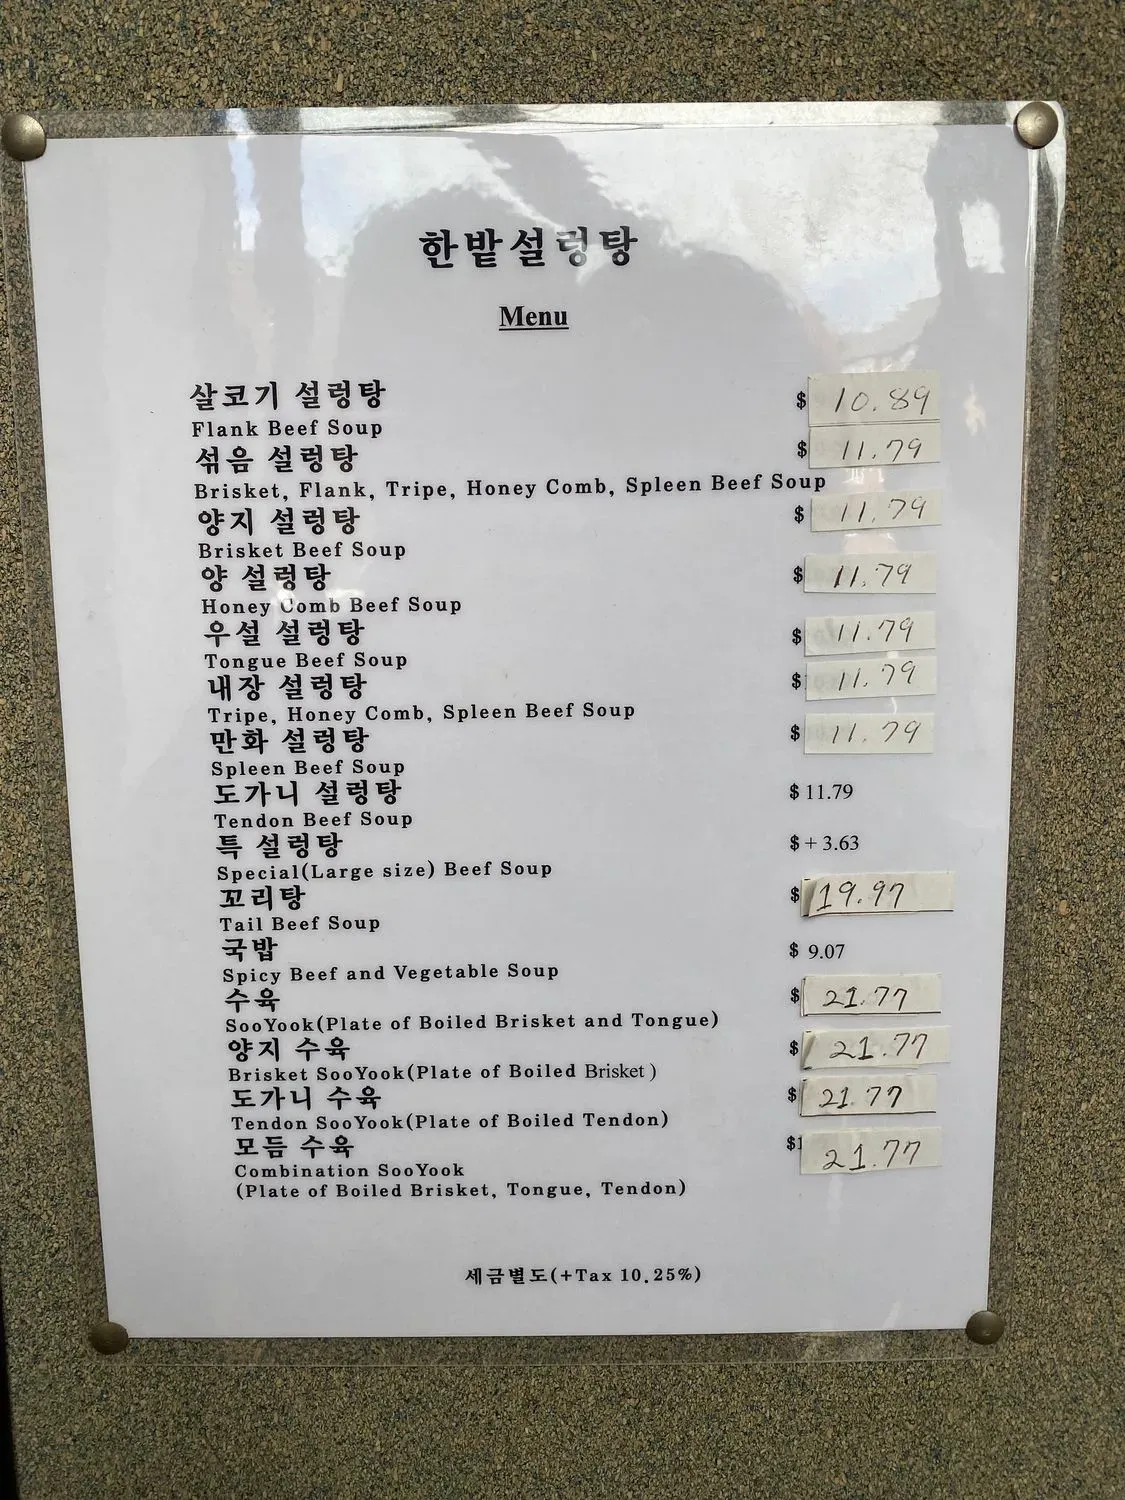 한밭설렁탕
Menu
살코기 설렁탕 $ 10.89
Flank Beef Soup
섞음 설렁탕 $ 11.79
Brisket, Flank, Tripe, Honey Comb, Spleen Beef Soup
양지 설렁탕 $ 11.79
Brisket Beef Soup
양 설렁탕 $ 11.79
Honey Comb Beef Soup
우설 설렁탕 $ 11.79
Tongue Beef Soup
내장 설렁탕 $ 11.79
Tripe, Honey Comb, Spleen Beef Soup
만화 설렁탕 $ 11.79
Spleen Beef Soup
도가니 설렁탕 $ 11.79
Tendon Beef Soup
특 설렁탕 $ + 3.63
Special(Large size) Beef Soup
꼬리탕 $ 19.97
Tail Beef Soup
국밥 $ 9.07
Spicy Beef and Vegetable Soup
수육 $ 21.77
SooYook(Plate of Boiled Brisket and Tongue)
양지 수육 $ 21.77
Brisket SooYook(Plate of Boiled Brisket )
도가니 수육 $ 21.77
Tendon SooYook(Plate of Boiled Tendon)
모듬 수육 $ 21.77
Combination SooYook
(Plate of Boiled Brisket, Tongue, Tendon)
세금별도(+Tax 10.25%)